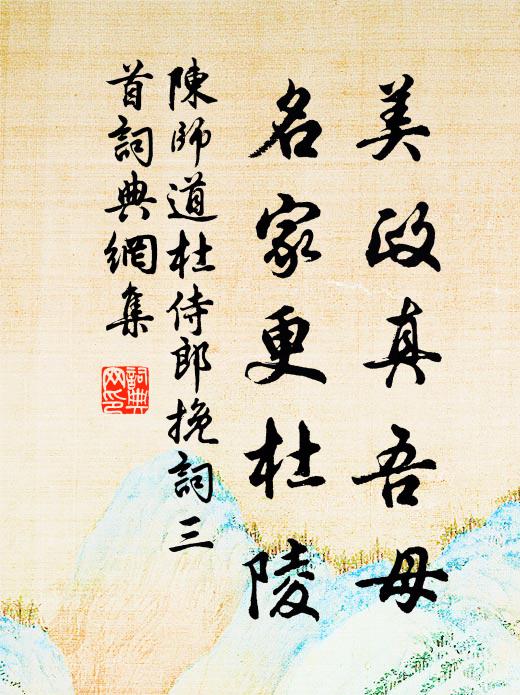 美政真吾母
名家更杜陵
陳師道杜侍郎挽詞三
首詞典網集
詞典
网印